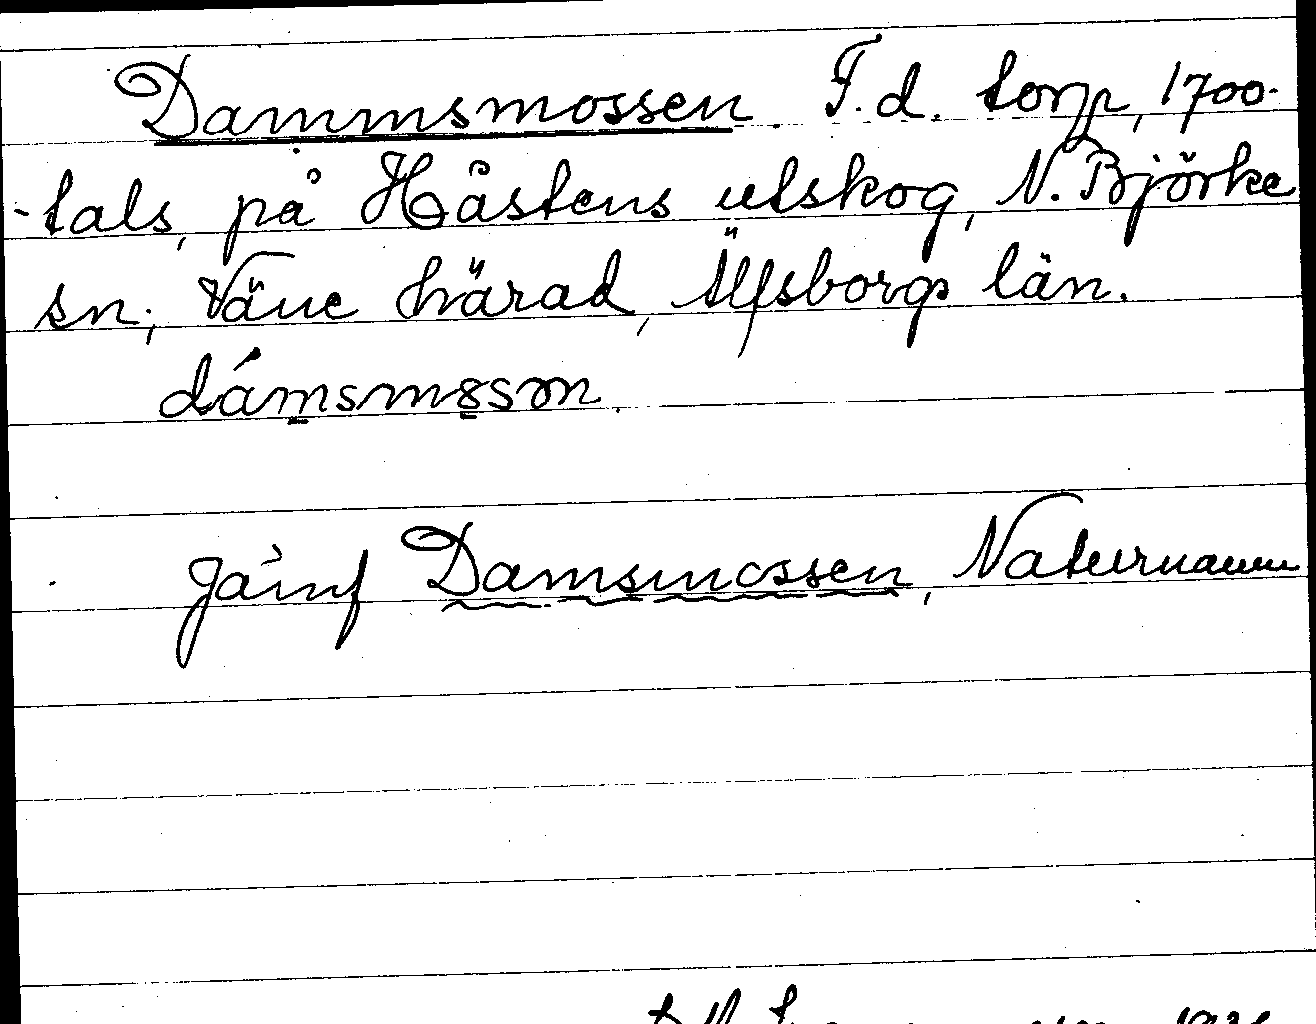 Dammsmossen. F.d. torp, 1700-
-tals, på Håstens utskog, N. Björke
sn; Väne härad, Älfsborgs län.
dámsmssn.
Jämf Damsmossen, Naturnamn